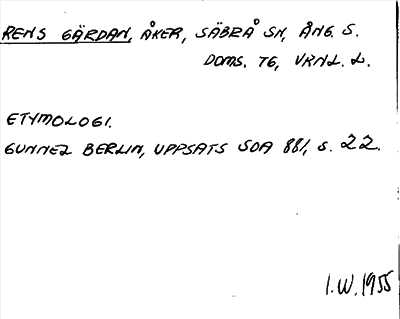 RENS GÄRDAN, ÅKER, SÄBRÅ SN, ÅNG. S.
DOMS. TG, VRNL. L.
ETYMOLOGI.
GUNNEL BERLIN, UPPSATS SOA 881, S. 22.
I.W. 1955